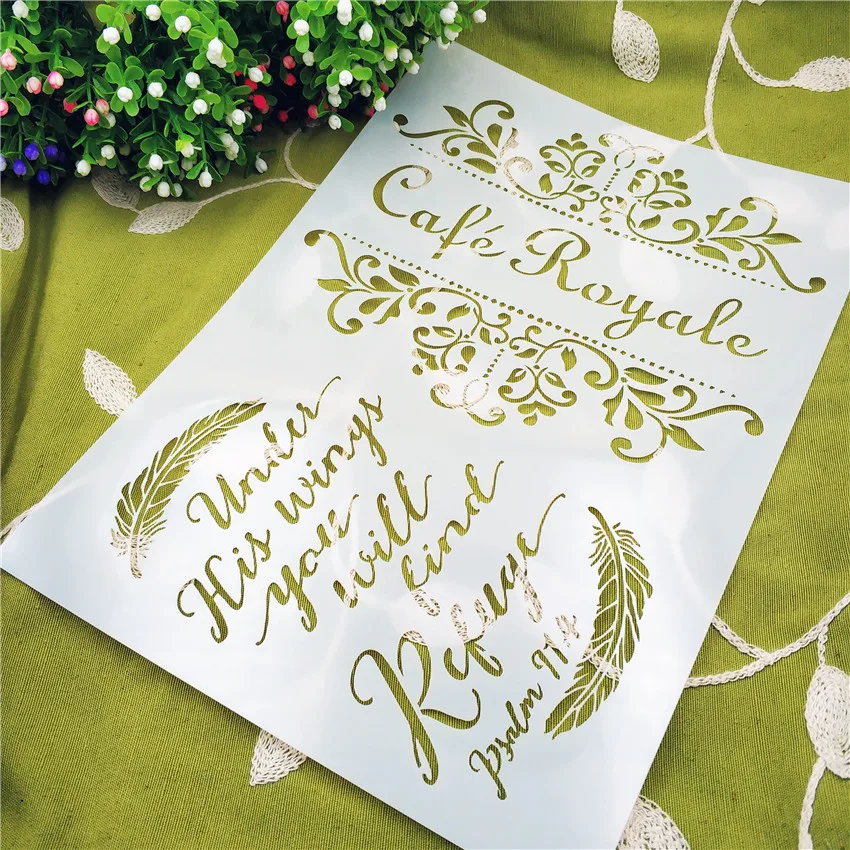 Café Royale
Under
His wings
you
will
find
Refuge
Psalm 91:4